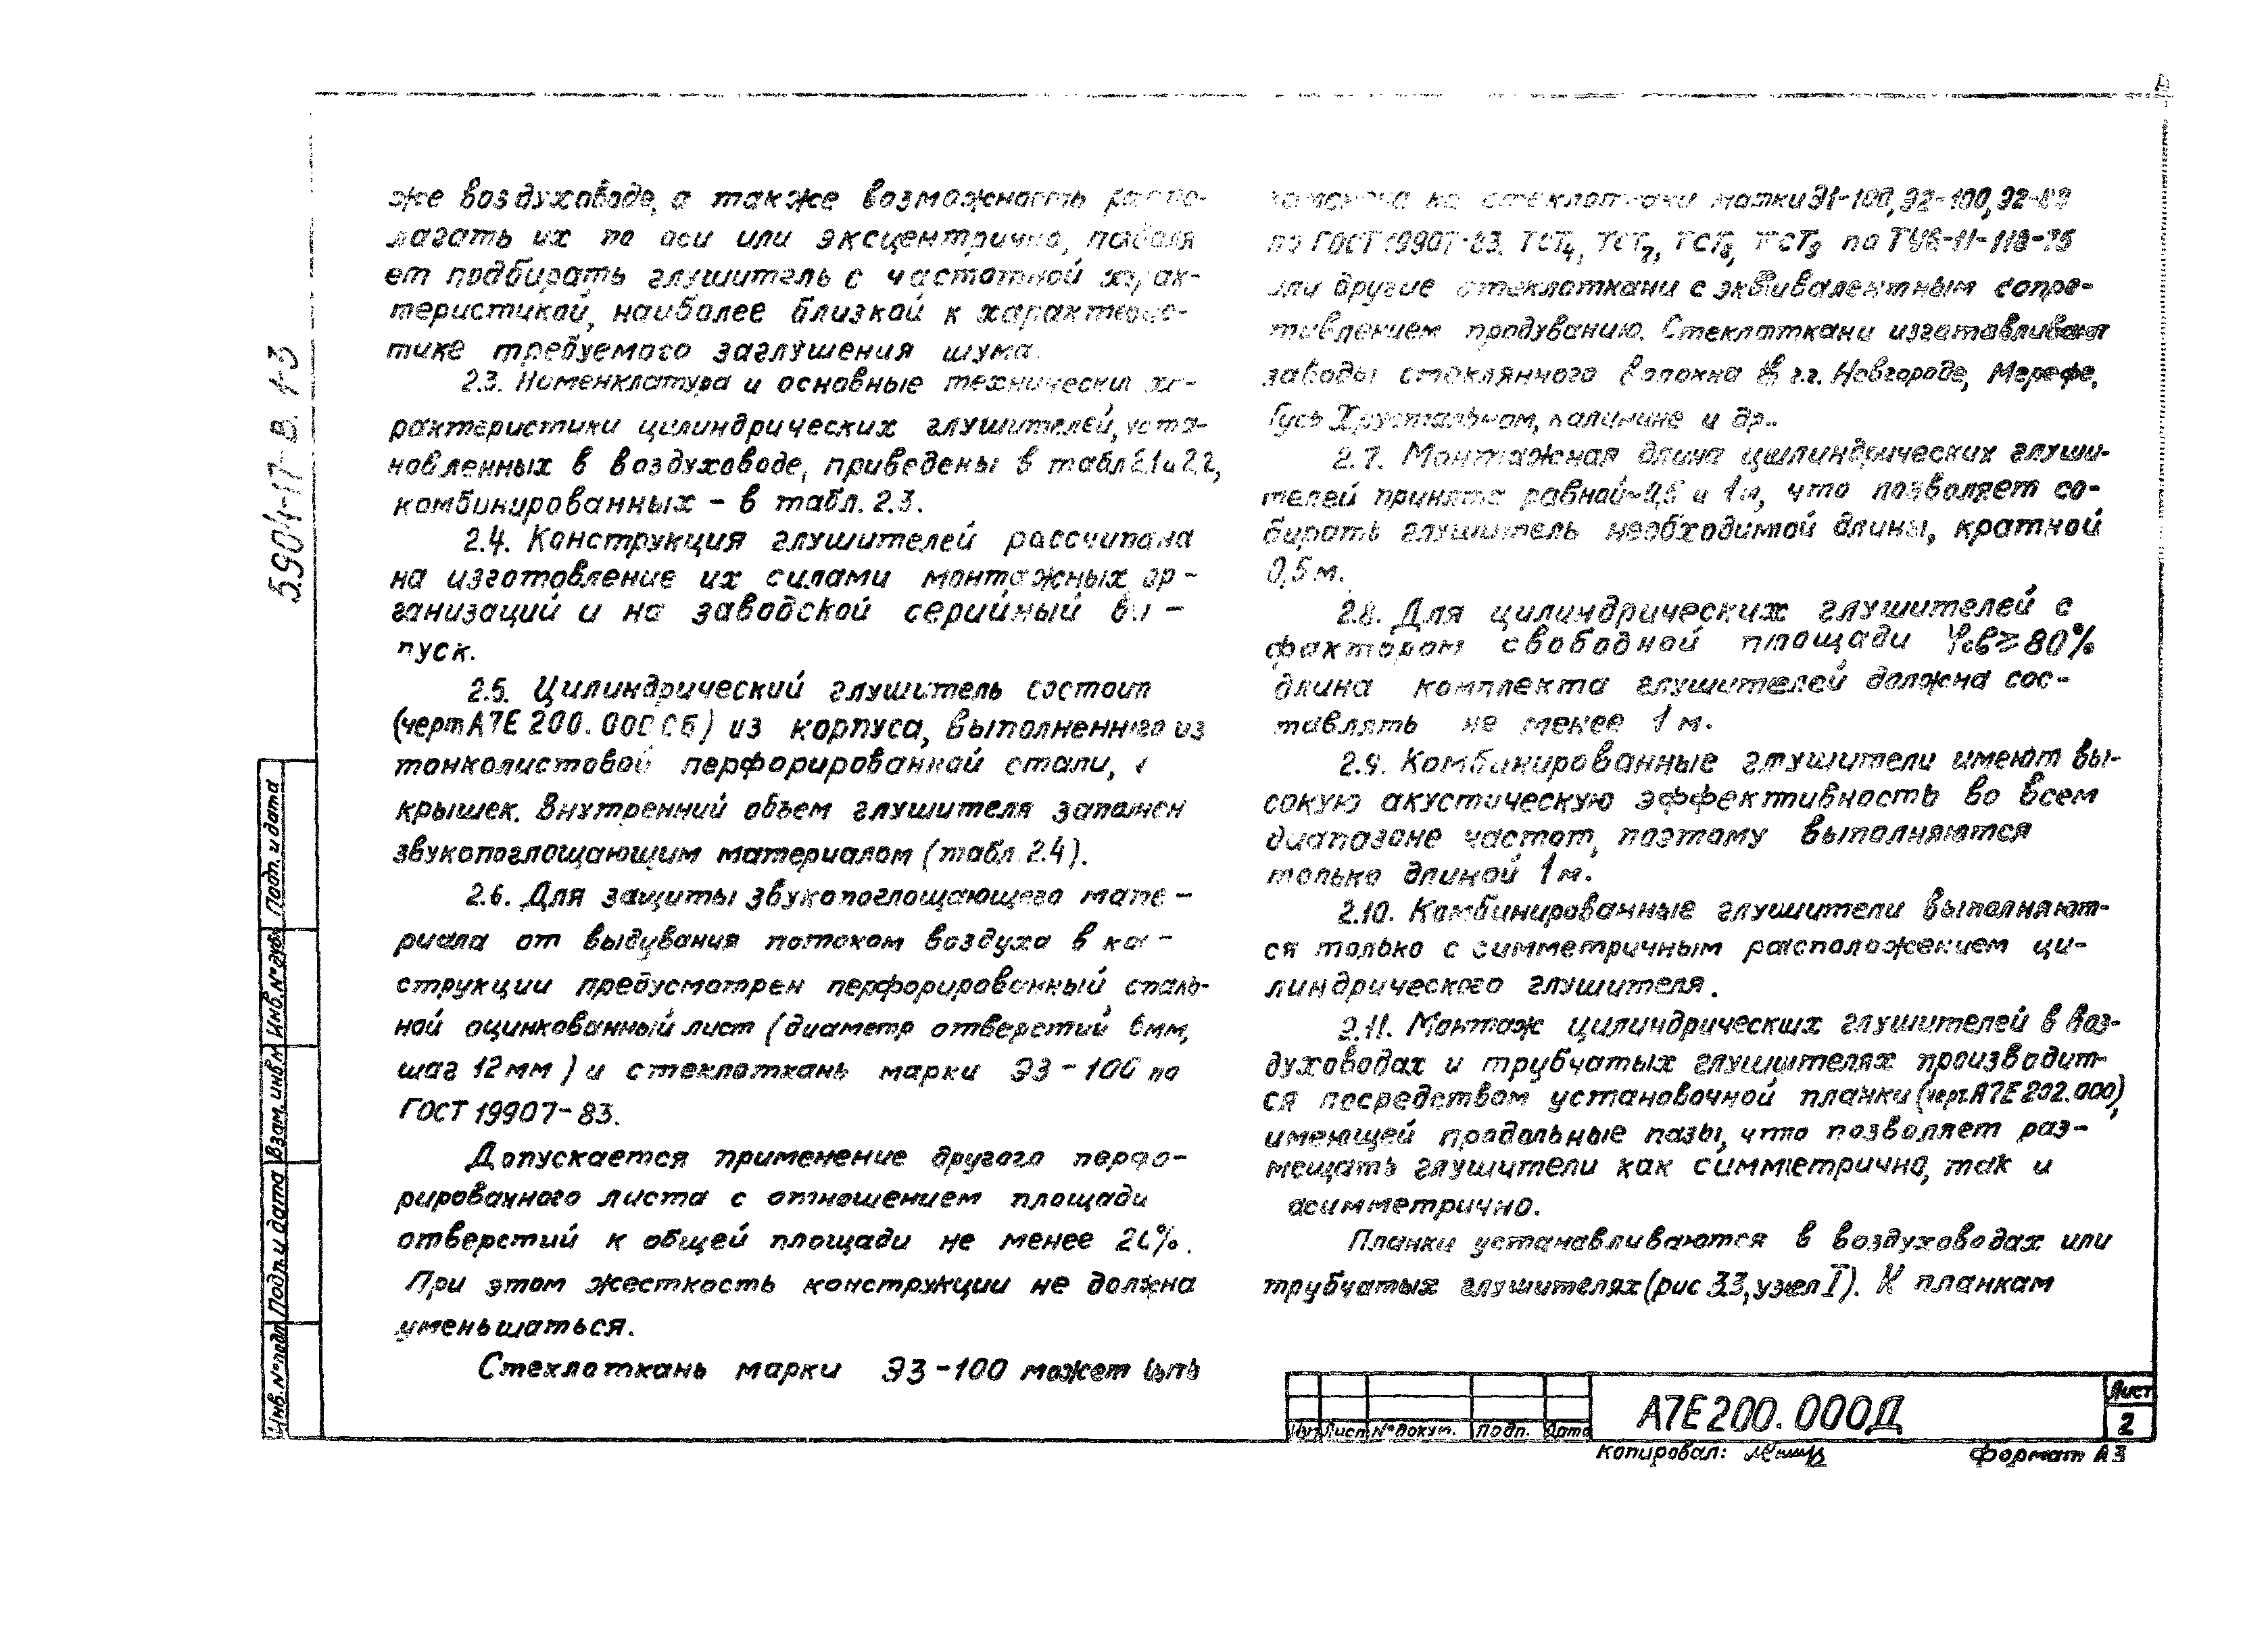 же воздуховоде, а также возможность распо-
лагать их по оси или эксцентрично, позволя
ет подбирать глушитель с частотной харак-
теристикой, наиболее близкой к характерис-
тике требуемого заглушения шума.
2.3. Номенклатура и основные технически ха-
рактеристики цилиндрических глушителей, уста-
новленных в воздуховоде, приведены в табл 2.1 и 2.2,
комбинированных – в табл. 2.3.
2.4. Конструкция глушителей рассчитана
на изготовление их силами монтажных ор-
ганизаций и на заводской серийный вы-
пуск.
2.5. Цилиндрический глушитель состоит
(черт А7Е 200.000 СБ) из корпуса, выполненного из
тонколистовой перфорированной стали, и
крышек. Внутренний объем глушителя заполнен
звукопоглощающим материалом (табл. 2.4).
2.6. Для защиты звукопоглощающего мате-
риала от выдувания потоком воздуха в кон-
струкции предусмотрен перфорированный сталь-
ной оцинкованный лист (диаметр отверстий 6мм,
шаг 12мм) и стеклоткань марки Э3-100 по
ГОСТ 19907-83.
Допускается применение другого перфо-
рированного листа с отношением площади
отверстий к общей площади не менее 20%.
При этом жесткость конструкции не должна
уменьшаться.
Стеклоткань марки Э3-100 может быть
на стеклоткани марки Э1-100, Э2-100, Э2-80
по ГОСТ 19907-83. ТСТ4, ТСТ7, ТСТ8, ТСТ9 по ТУ6-11-118-75
или другие стеклоткани с эквивалентным сопро-
тивлением продуванию. Стеклоткани изготавливают
заводы стеклянного волокна в г.г. Новгороде, Мерефе,
Гусь Хрустальном, Калинине и др..
2.7. Монтажная длина цилиндрических глуши-
телей принята равной ~0,5 и 1м, что позволяет со-
бирать глушитель необходимой длины, кратной
0,5м.
2.8. Для цилиндрических глушителей с
фактором свободной площади φсв≥80%
длина комплекта глушителей должна сос-
тавлять не менее 1 м.
2.9. Комбинированные глушители имеют вы-
сокую акустическую эффективность во всем
диапазоне частот, поэтому выполняются
только длиной 1м.
2.10. Комбинированные глушители выполняют-
ся только с симметричным расположением ци-
линдрического глушителя.
2.11. Монтаж цилиндрических глушителей в воз-
духоводах и трубчатых глушителях производит-
ся посредством установочной планки (черт. А7Е 202.000),
имеющей продольные пазы, что позволяет раз-
мещать глушители как симметрично, так и
асимметрично.
Планки устанавливаются в воздуховодах или
трубчатых глушителях (рис 3.3, узел I). К планкам
5.904-17 В. 1-3
Подп. и дата
Инв. № дубл
Взам. инв. №
Подп. и дата
Инв. № подл
Лист № докум. Подп. Дата
А7Е 200.000Д
Лист
2
Копировал:
Формат А3